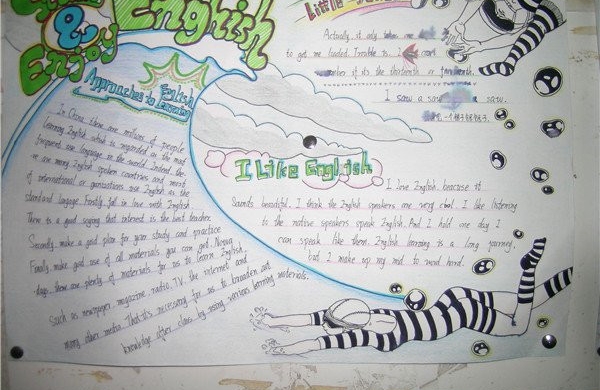 English
&
Enjoy
English
Approaches to Learning
In China, there are millions of people
learning English which is regarded as the most
frequent use language in the world. Indeed there
are many English spoken countries and most
of international organizations use English as the
standard language. Firstly, fall in love with English.
There is a good saying that interest is the best teacher.
Secondly, make a good plan for your study and practice
Finally, make good use of all materials you can get. Nowa
days, there are plenty of materials for us to learn English,
Such as newspaper magazine radio, TV, the internet and
many other media. That's necessary for us to broaden out
knowledge after class by using various learning materials.
Actually, it only takes me
to get me loaded. Trouble is, I can't
remember if it's the thirteenth or fourteenth.
I saw a saw saw.
I Like English
I love English because it
Sounds beautiful. I think the English speakers are very cool. I like listening
to the native speakers speak English. And I hold one day I
can speak like them. English learning is a long journey,
but I make up my mid to word hard.